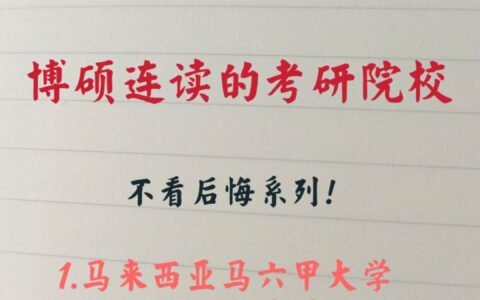 博硕连读的考研院校
不看后悔系列!
1.马来西亚马六甲大学